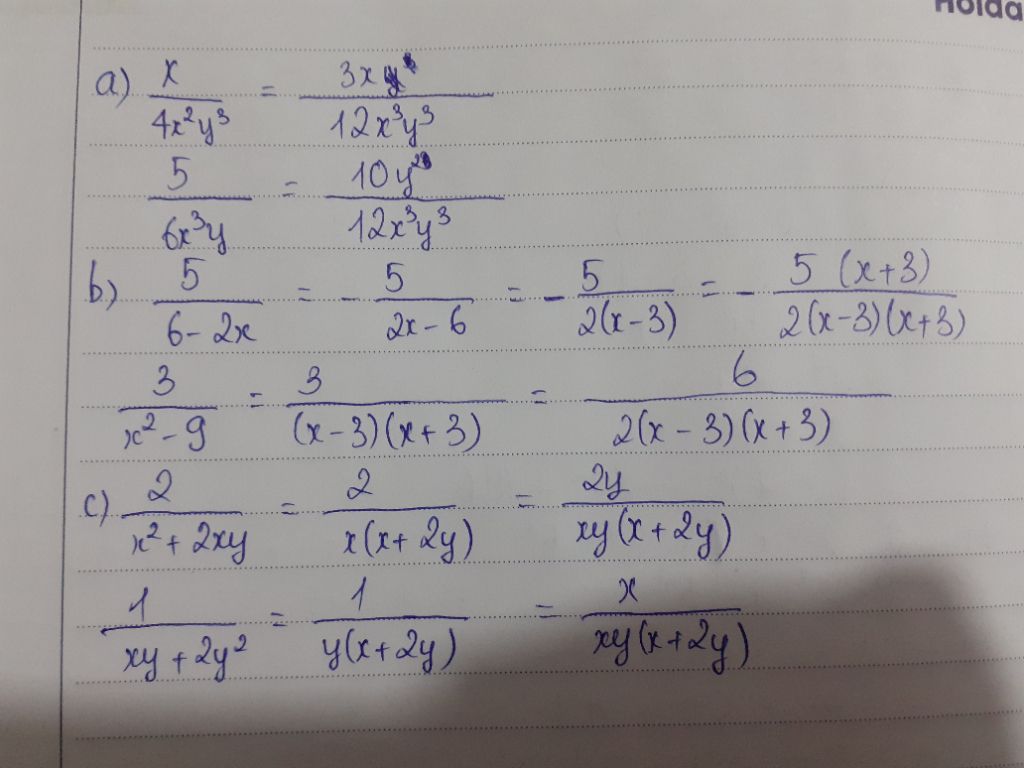 a) x/(4x²y³) = 3x/(12x³y³)
5/(6x³y) = 10y²/(12x³y³)
b) 5/(6-2x) = - 5/(2x-6) = - 5/(2(x-3)) = - 5(x+3)/(2(x-3)(x+3))
3/(x²-9) = 3/((x-3)(x+3)) = 6/(2(x-3)(x+3))
c) 2/(x²+2xy) = 2/(x(x+2y)) = 2y/(xy(x+2y))
1/(xy+2y²) = 1/(y(x+2y)) = x/(xy(x+2y))